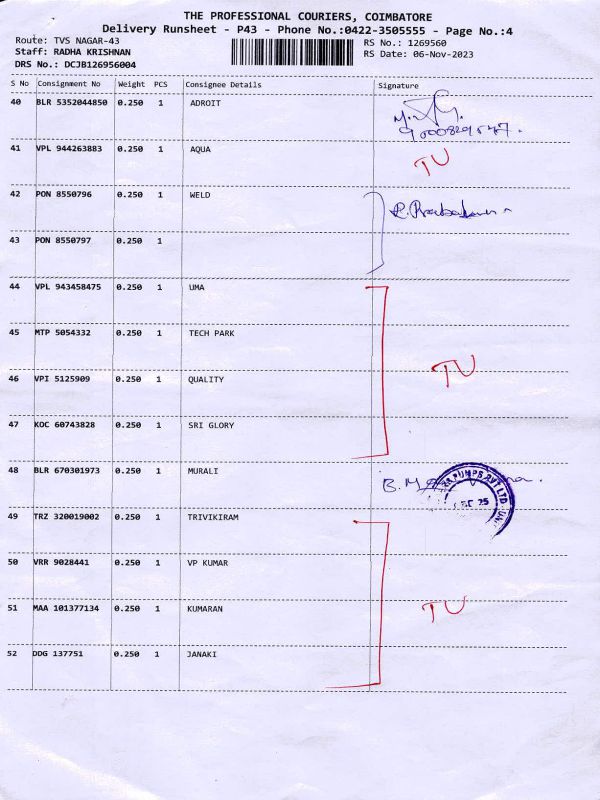 THE PROFESSIONAL COURIERS, COIMBATORE
Delivery Runsheet - P43 - Phone No.:0422-3505555 - Page No.:4
Route: TVS NAGAR-43 RS No.: 1269560
Staff: RADHA KRISHNAN RS Date: 06-Nov-2023
DRS No.: DCJB126956004
S No Consignment No Weight PCS Consignee Details Signature
40 BLR 5352044850 0.250 1 ADROIT
41 VPL 944263883 0.250 1 AQUA TU
42 PON 8550796 0.250 1 WELD
43 PON 8550797 0.250 1
44 VPL 943458475 0.250 1 UMA
45 MTP 5054332 0.250 1 TECH PARK
TU
46 VPI 5125909 0.250 1 QUALITY
47 KOC 60743828 0.250 1 SRI GLORY
48 BLR 670301973 0.250 1 MURALI B. M
PUMPS PVT LTD
49 TRZ 320019002 0.250 1 TRIVIKIRAM
50 VRR 9028441 0.250 1 VP KUMAR
51 MAA 101377134 0.250 1 KUMARAN TU
52 DDG 137751 0.250 1 JANAKI